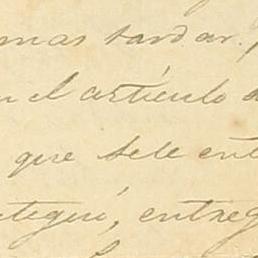 mas tardar.
en el artículo d
que se le ent
ategui, entreg